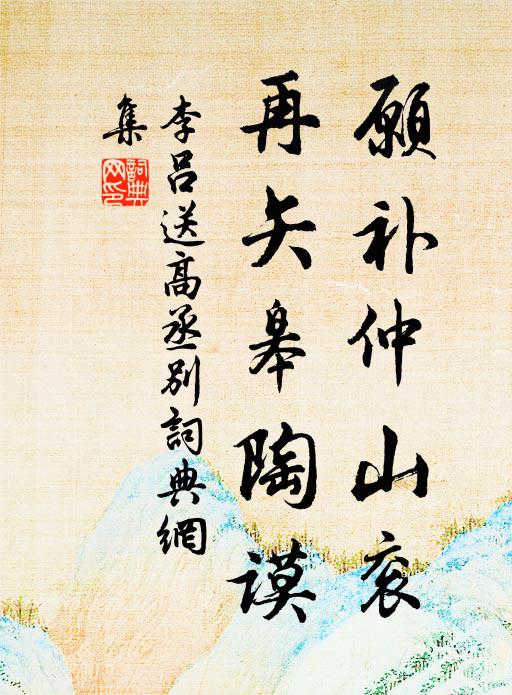 願补仲山衮
再矢皋陶谟
李吕送高丞别詞典網
集
詞典网印